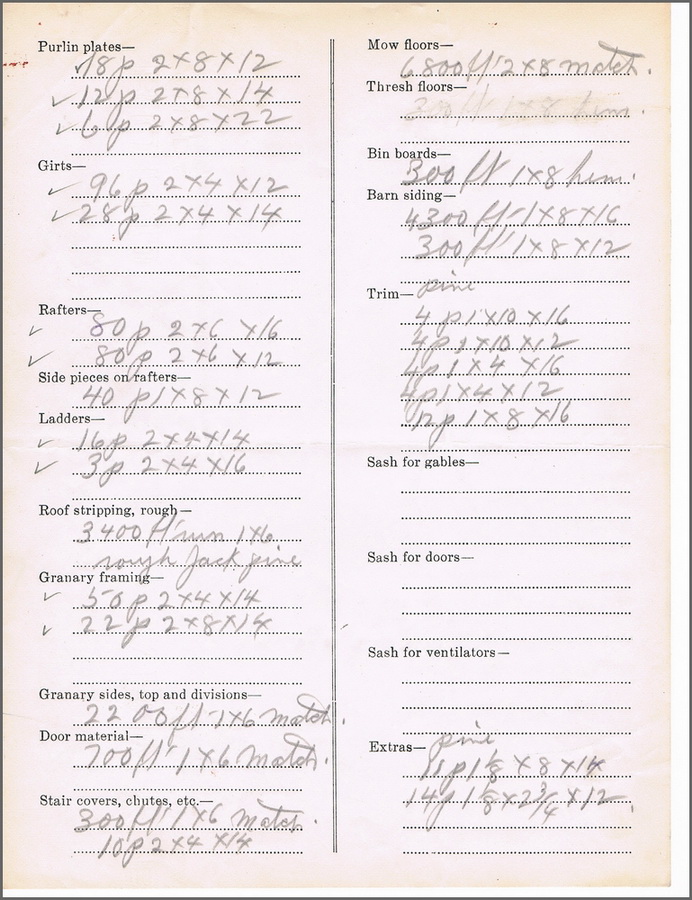 Purlin plates—
✓ 18 p 2×8×12
✓ 12 p 2×8×14
✓ 6 p 2×8×22
Girts—
✓ 96 p 2×4×12
✓ 28 p 2×4×14
Rafters—
✓ 80 p 2×6 ×16
✓ 80 p 2×6 ×12
Side pieces on rafters—
40 p 1×8×12
Ladders—
✓ 16 p 2×4×14
✓ 3 p 2×4×16
Roof stripping, rough—
3400 ft run 1×6
rough Jack pine
Granary framing—
✓ 50 p 2×4×14
✓ 22 p 2×8×14
Granary sides, top and divisions—
2200 ft 1×6 match.
Door material—
700 ft 1×6 match.
Stair covers, chutes, etc.—
300 ft 1×6 match.
10 p 2×4 ×14
Mow floors—
6800 ft 2×8 match.
Thresh floors—
300 ft 1×8 hem.
Bin boards—
300 ft 1×8 hem.
Barn siding—
4300 ft 1×8×16
300 ft 1×8×12
Trim— pine
4 p 1×10 ×16
4 p 1×10×12
4 p 1×4 ×16
4 p 1×4×12
12 p 1×8 ×16
Sash for gables—
Sash for doors—
Sash for ventilators—
Extras— pine
11 p 1⅛ ×8 ×14
14 p 1⅛ ×2¾ ×12